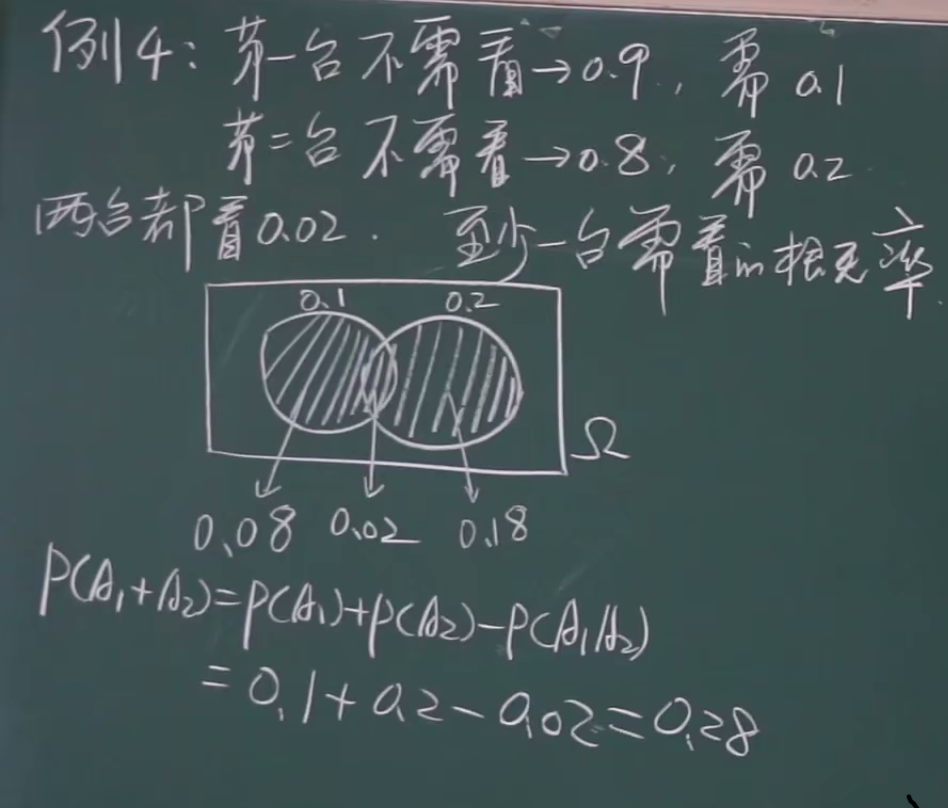 例4：第一台不需看→0.9，需 0.1
第二台不需看→0.8，需 0.2
两台都看0.02. 至少一台需看的概率.
0.1 0.2
Ω
0.08 0.02 0.18
P(A₁+A₂)=P(A₁)+P(A₂)-P(A₁A₂)
=0.1+0.2-0.02=0.28